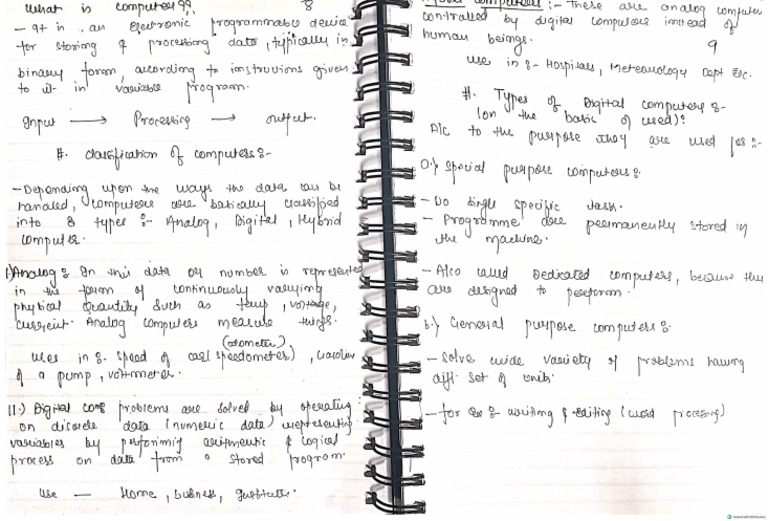 what is computer??
8
- It is an electronic programmable device
for storing & processing data, typically in
binary form, according to instruvions given
to it in variable program.
Input → Processing → output.
#. classification of computers :-
- Depending upon the ways the data can be
handled, computers are basically classified
into 3 types :- Analog, Digital, Hybrid
computer.
I.) Analog : In this data or number is represented
in the form of continuously varying
physical quantity such as temp, voltage,
current. Analog computers measure things.
(odometer)
uses in :- speed of car (speedometer),
of a pump, voltmeter.
II.) Digital problems are solved by operating
on discrete data (numeric data) representing
variables by performing aritmentic & logical
process on data from a stored program.
Use — Home, business,
computers :- These are analog computer
controlled by digital computers instead of
human beings.
9
use in :- Hospitals, Meteorology Dept Etc.
#. Types of Digital computers :-
(on the basic of used):
A/c to the purpose they are used for :-
a.) Special purpose computers :-
- Do single specific task.
- Programme are permanently stored in
the machine.
- Also called Dedicated computers, because they
are designed to perform.
b.) General purpose computers :-
- Solve wide variety of problems having
diff. set of units.
- for Ex :- writing & editing (word processing)